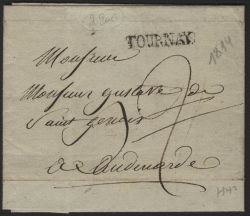 TOURNAY
1814
Monsieur
Monsieur gustave de
Saint genois
a audenarde